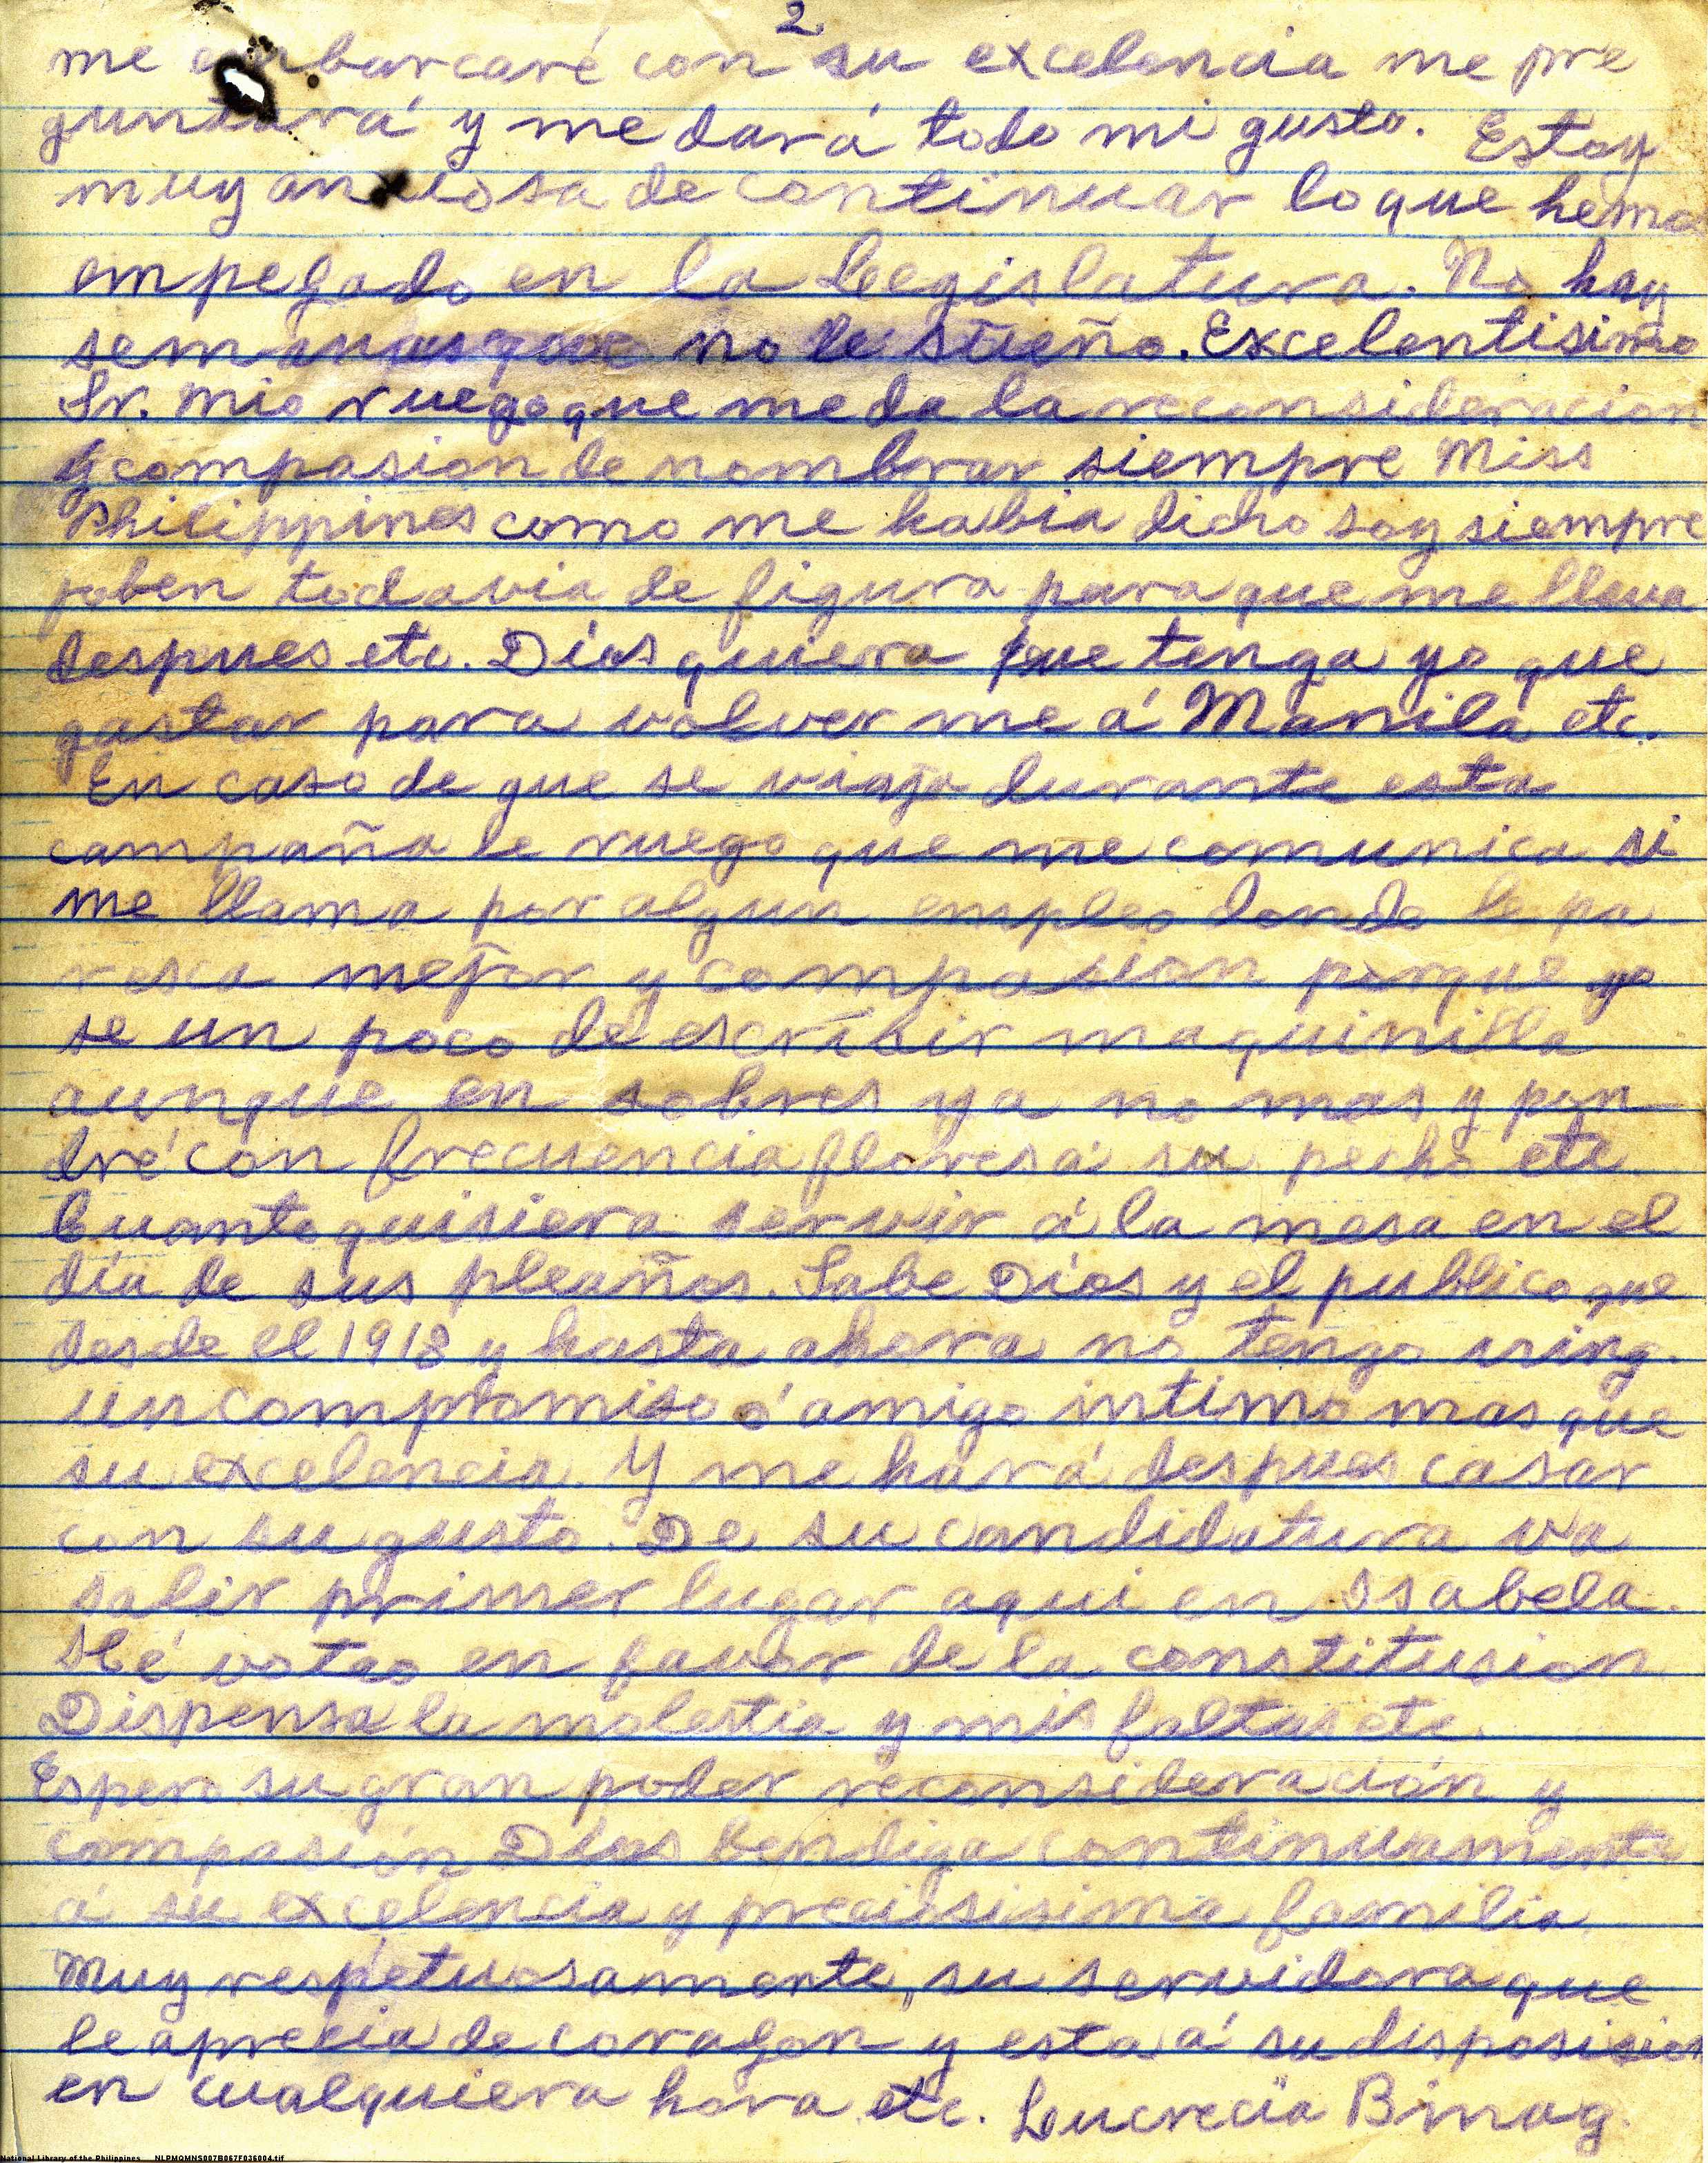 2
me embarcaré con su excelencia me pre
guntará y me dará todo mi gusto. Estoy
muy anciosa de continuar lo que hemo
empeȥado en la Legislatura. No hay
semanas que no le sueño. Excelentisimo
Sr. mio ruego que me da la reconsideracion
y compasion de nombrar siempre Miss
Philippines como me habia dicho soy siempre
joben todavia de figura para que me lleva
despues etc. Dios quiera que tenga yo que
gastar para volver me á Manila etc.
En caso de que se viaja durante esta
campaña le ruego que me comunica si
me llama por algun empleo donde le pa
resca mejor y compasion porque yo
se un poco de escribir maquinilla
aunque en sobres ya no mas y pon
dré con frecuencia flores á su pecho etc
Cuanto quisiera servir á la mesa en el
dia de sus pleaños. Sabe Dios y el publico que
desde el 1918 y hasta ahora no tengo ning.
un compromiso ó amigo intimo mas que
su excelencia. Y me hará despues casar
con su gusto. De su candidatura va
salir primer lugar aqui en Isabela.
Hé votao en favor de la constitusion
Dispensa la molestia y mis faltas etc.
Espero su gran poder reconsideración y
compasión Dios bendiga continuamente
á su excelencia y preciosisima familia
Muy respetuosamente, su servidora que
le aprecia de coragon y esta á su disposision
en cualquiera hora etc. Lucrecia Binag.
National Library of the Philippines NLPMQMNS007B067F036004.tif